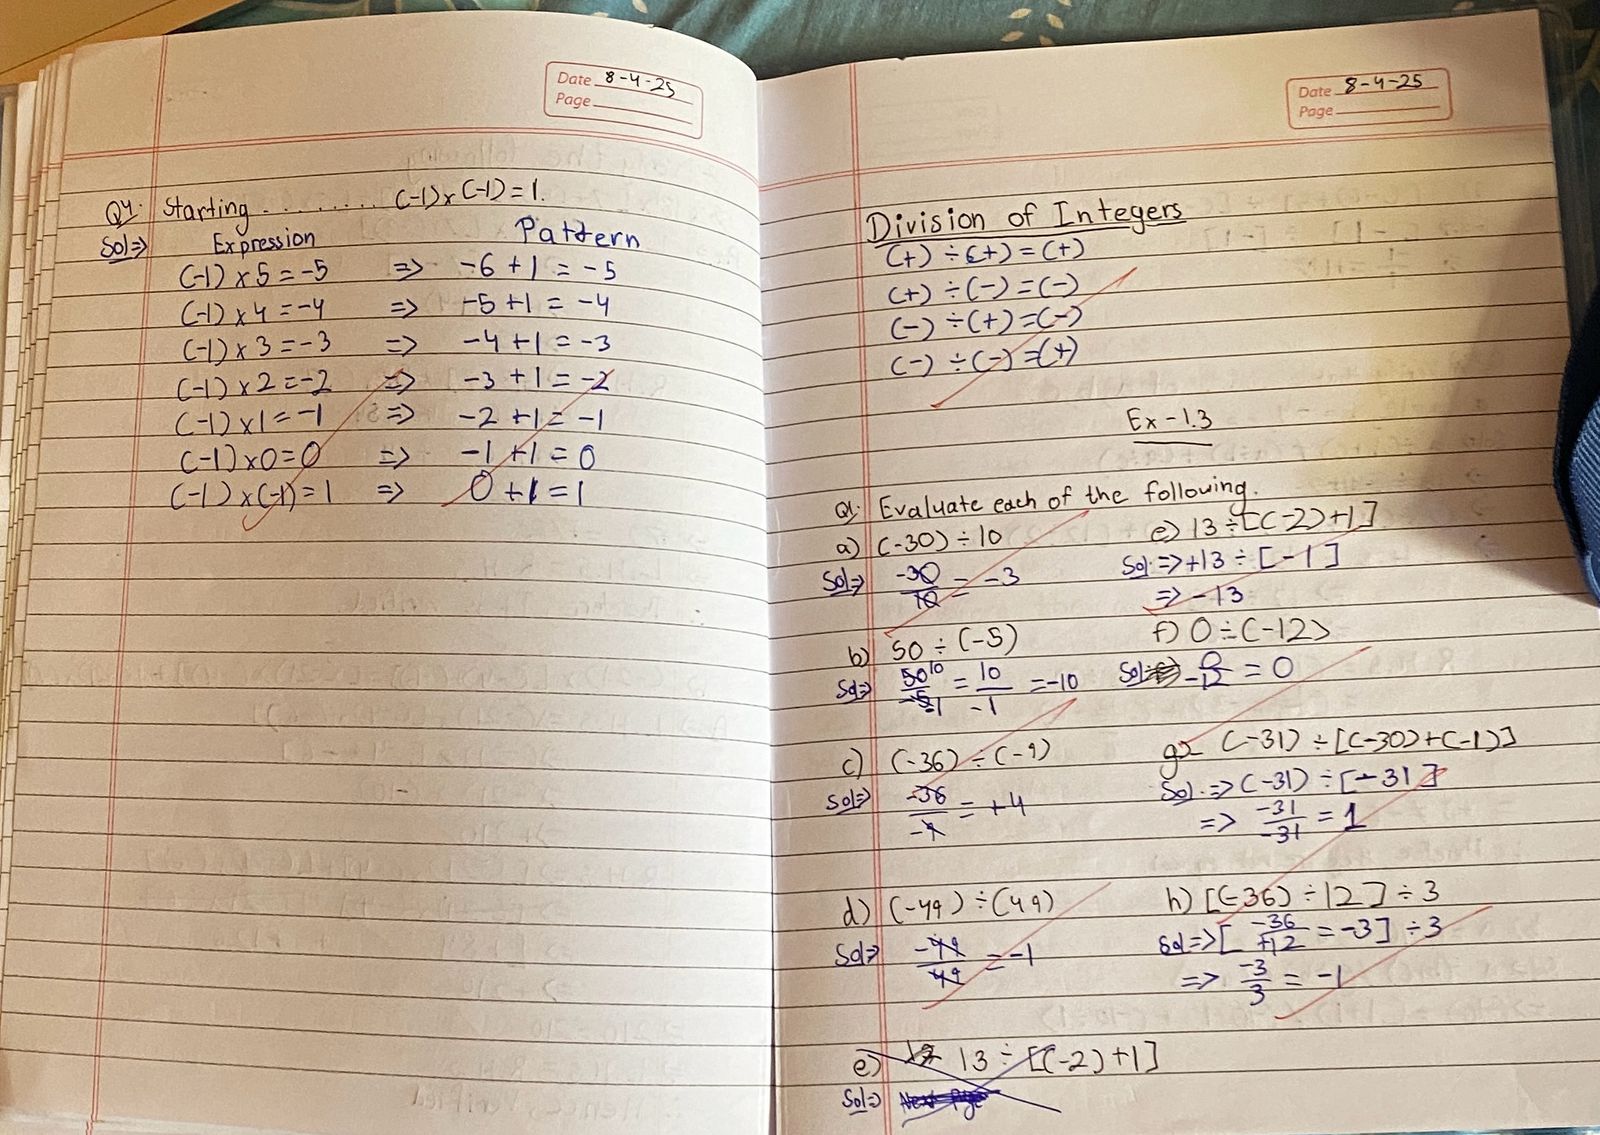 Date 8-4-25
Page
Q4. Starting ......... (-1)x(-1)=1.
Sol=> Expression Pattern
(-1) x 5 = -5 => -6 + 1 = -5
(-1) x 4 = -4 => -5 + 1 = -4
(-1) x 3 = -3 => -4 + 1 = -3
(-1) x 2 = -2 => -3 + 1 = -2
(-1) x 1 = -1 => -2 + 1 = -1
(-1) x 0 = 0 => -1 + 1 = 0
(-1) x (-1) = 1 => 0 + 1 = 1
Date 8-4-25
Page
Division of Integers
(+) ÷ (+) = (+)
(+) ÷ (-) = (-)
(-) ÷ (+) = (-)
(-) ÷ (-) = (+)
Ex - 1.3
Q1. Evaluate each of the following.
a) (-30) ÷ 10
Sol=> -30/10 = -3
b) 50 ÷ (-5)
Sol=> 50 10/-5 -1 = 10/-1 = -10
c) (-36) ÷ (-9)
Sol=> -36/-9 = +4
d) (-49) ÷ (49)
Sol=> -49/49 = -1
e) 13 ÷ [(-2)+1]
Sol=>
e) 13 ÷ [(-2)+1]
Sol. => +13 ÷ [-1]
=> -13
f) 0 ÷ (-12)
Sol: 0/-12 = 0
g) (-31) ÷ [(-30)+(-1)]
Sol. => (-31) ÷ [-31]
=> -31/-31 = 1
h) [(-36) ÷ 12] ÷ 3
Sol=> [-36/+12 = -3] ÷ 3
=> -3/3 = -1